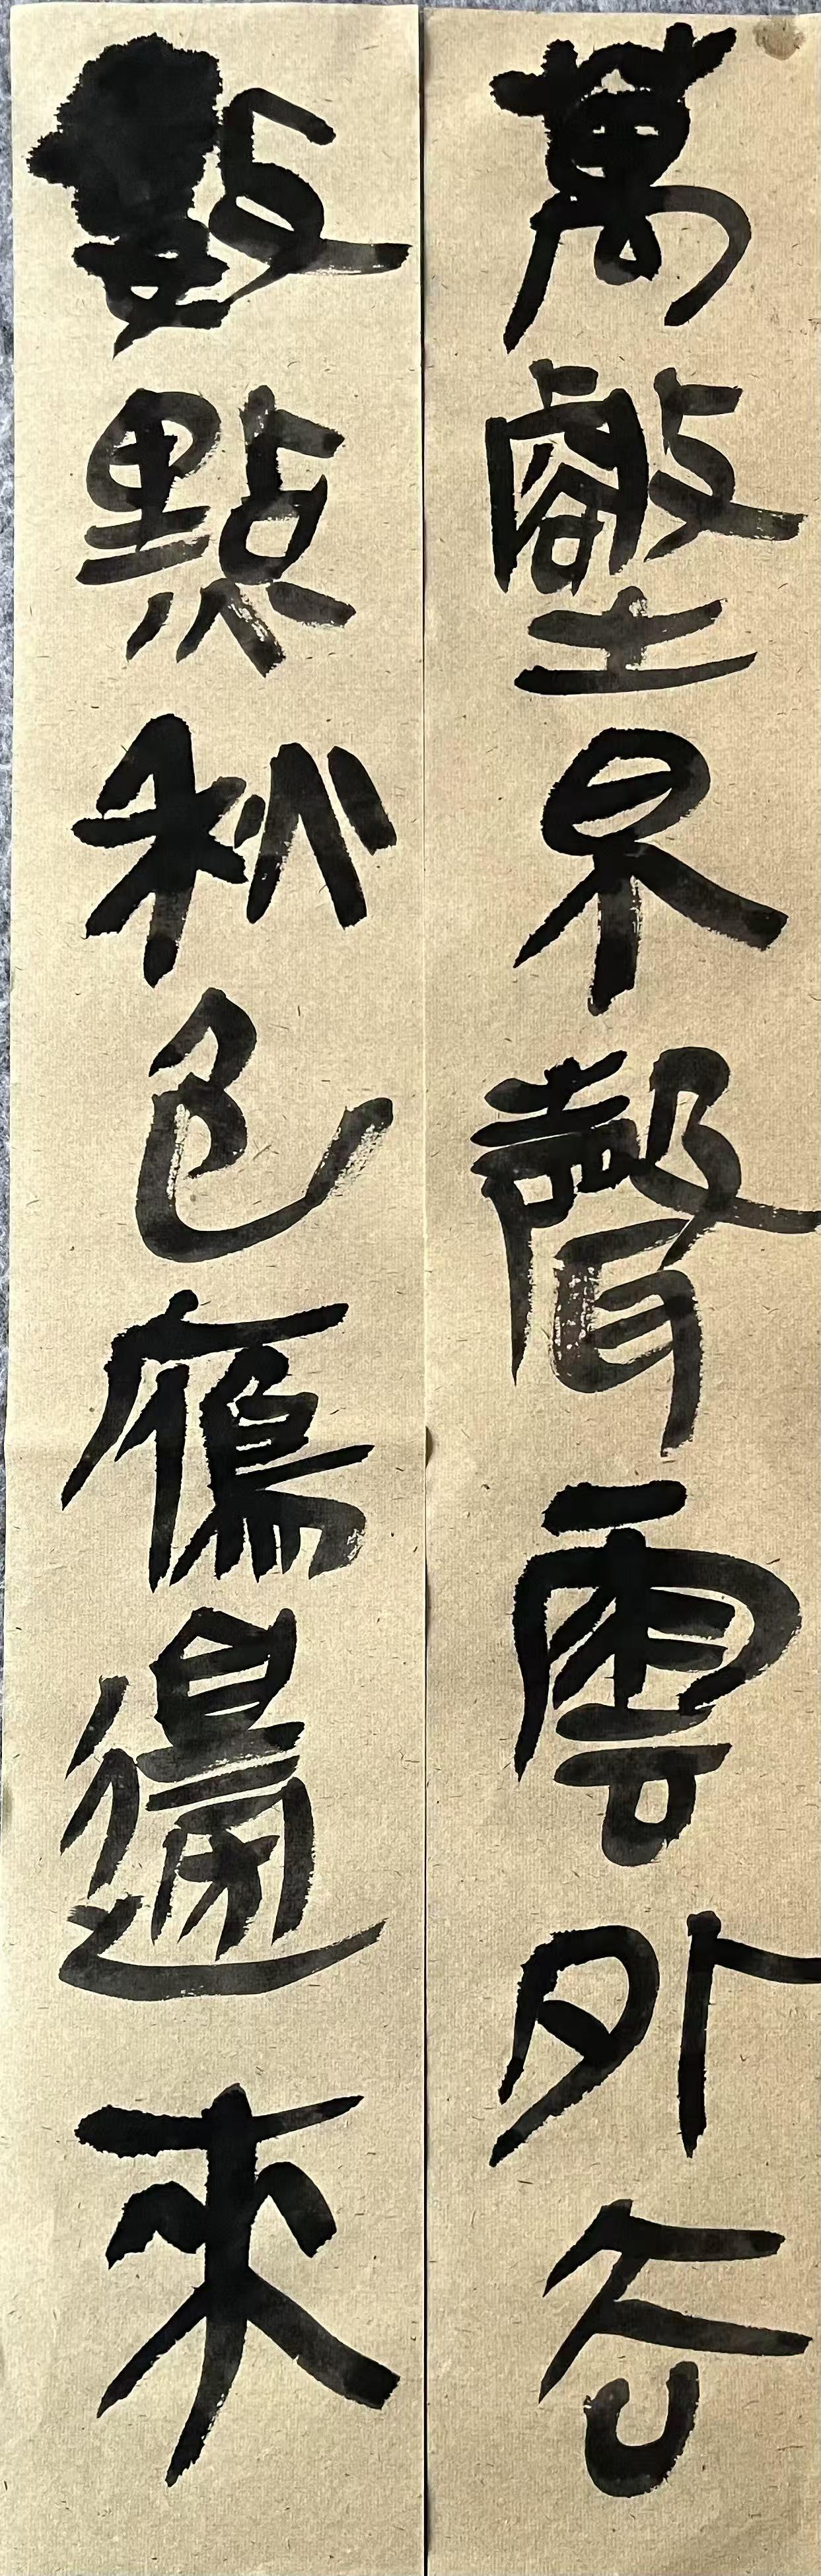 萬壑泉聲雲外去
數點秋色鴈邊來